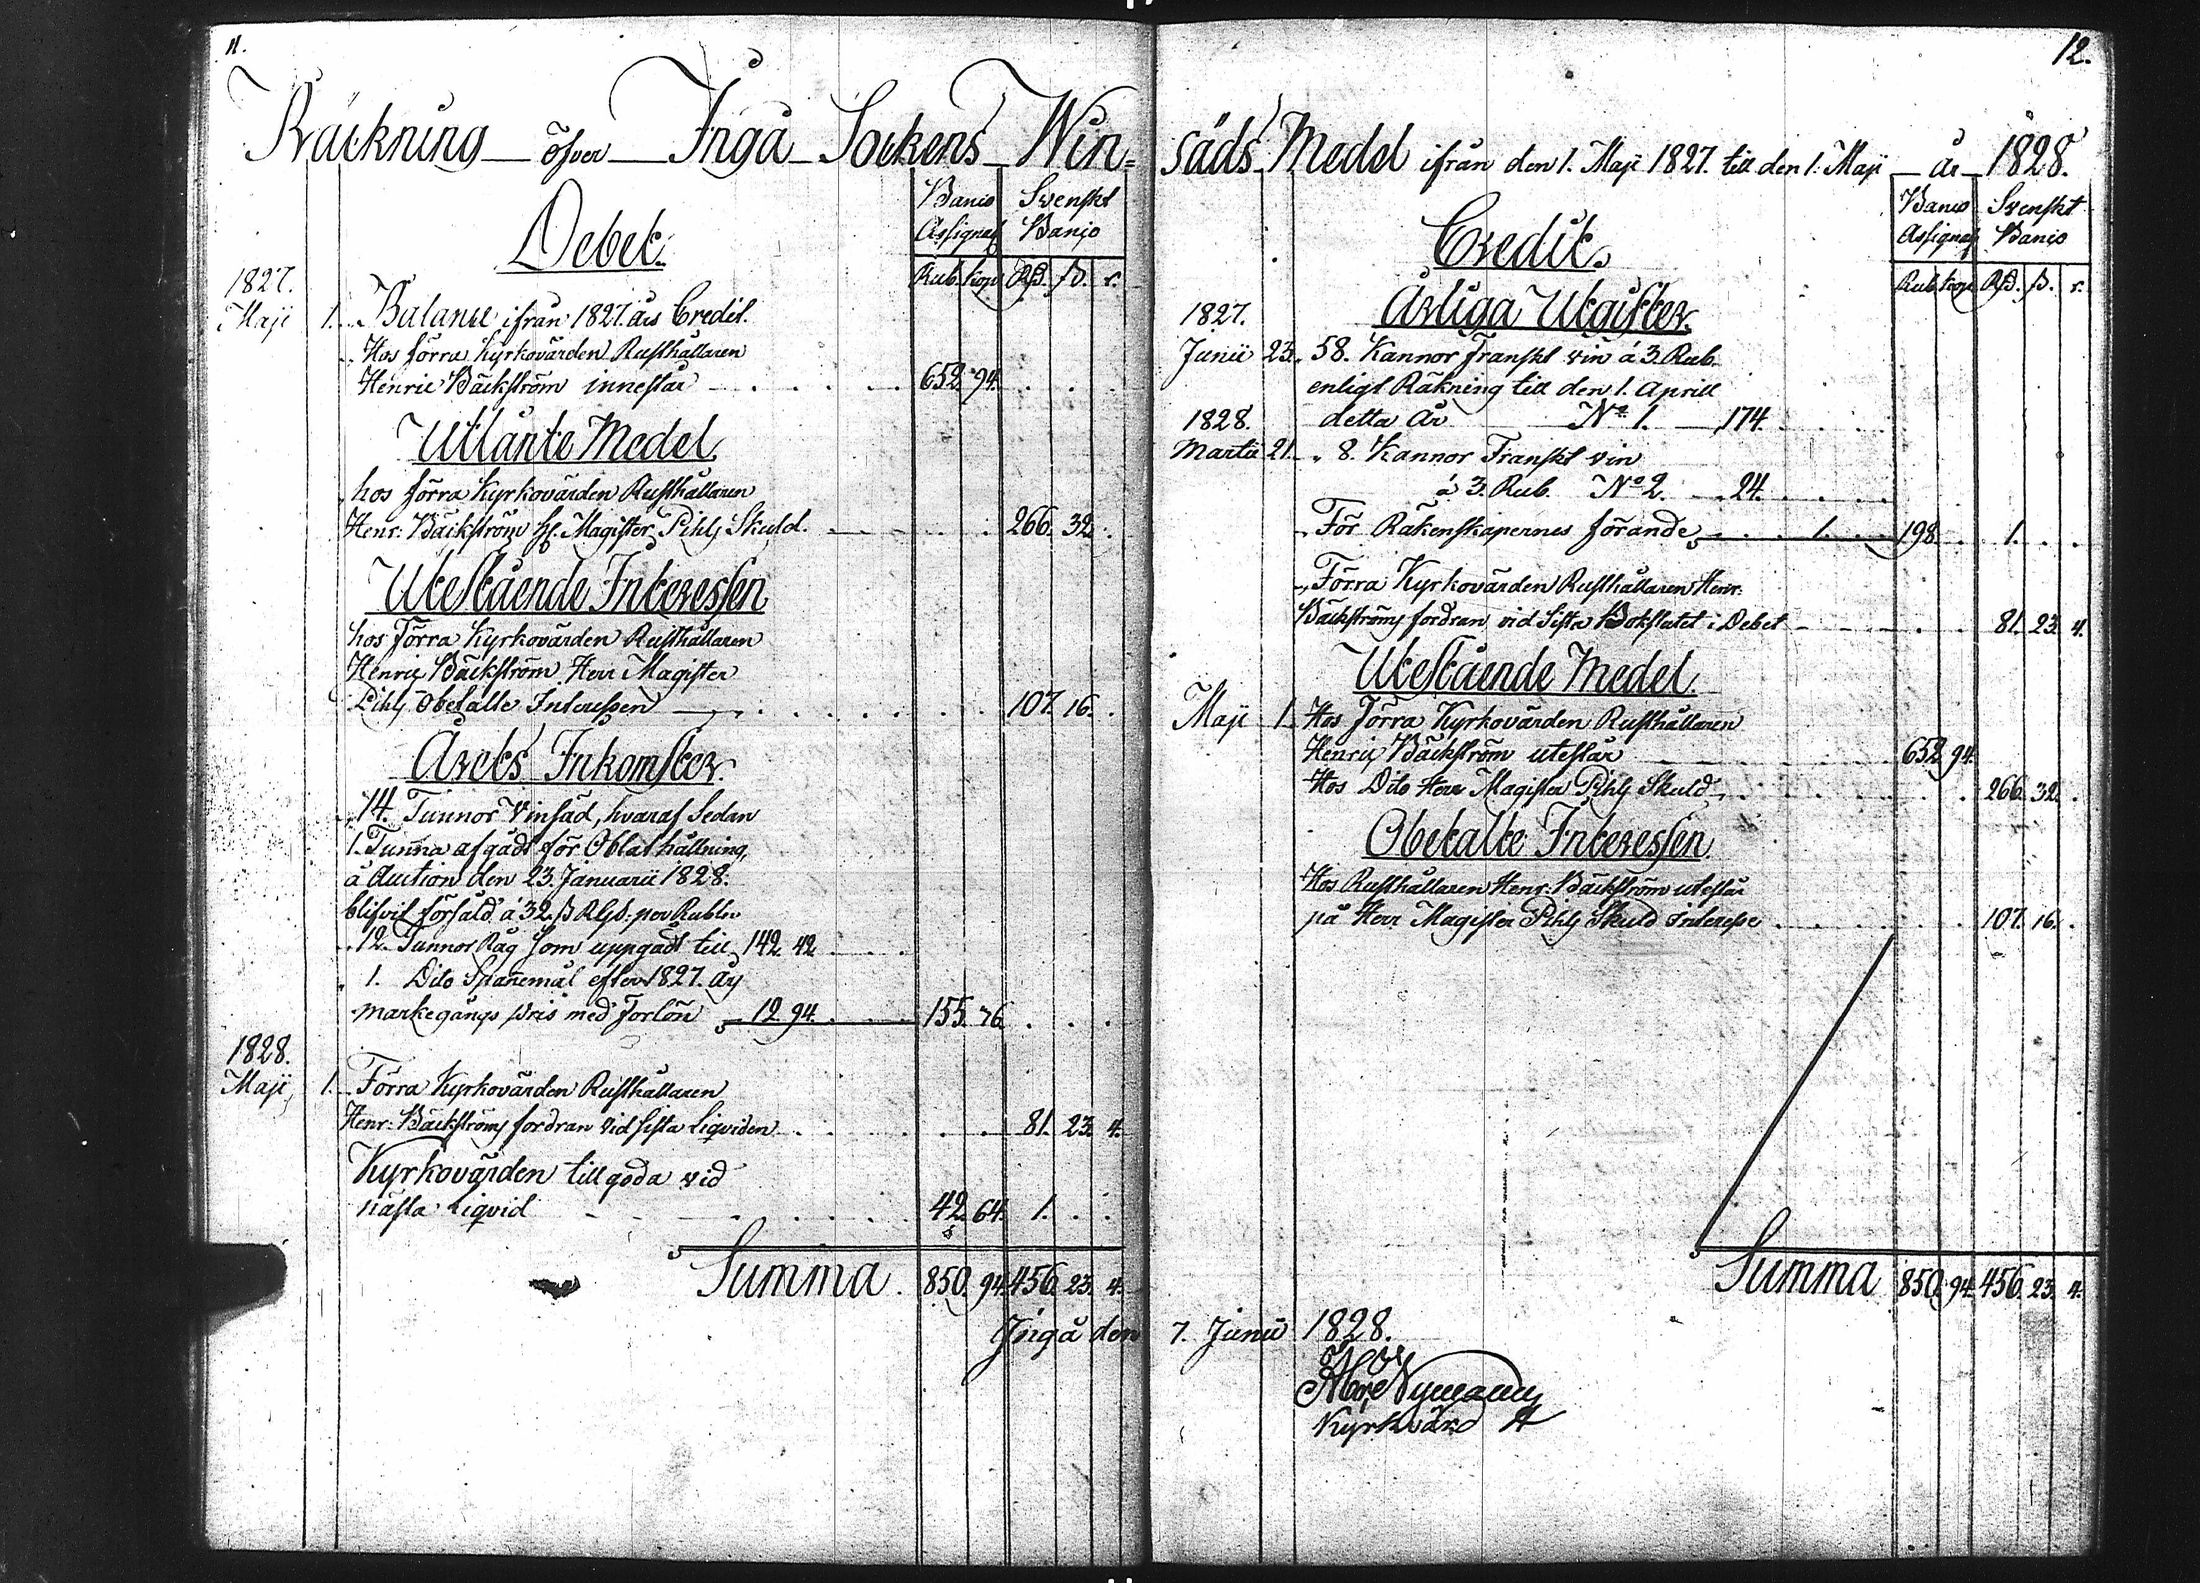 11.
Räckning öfver Ingå Sockens Win=
Debet.
Banco Svenskt
Assignat Banco
Rub. kop Rß. ß. r.
1827.
Maji 1. Balance ifrån 1827 års Credit.
Hos förra Kyrkovärden Rusthållaren
Henric Bäckström innestår 652. 94.
Utlänte Medel
hos förra Kyrkovärden Rusthållaren
Henr: Bäckström Hr. Magister Pihls Skuld. 266. 32.
Utestående Interessen
hos Förra Kyrkovärden Rusthållaren
Henric Bäckström Herr Magister
Pihls Obetalte Interessen 107. 16.
Årets Inkomster.
14. Tunnor Vinsäd, hvaraf Sedan
1. Tunna afgådt för Oblathållning,
å Auction den 23. Januarii 1828.
blifvit försåld á 32 ß Rgs. per Rubler
12. Tunnor Råg som uppgådt till 142. 42
1. Dito Spanemål efter 1827. års
markegångs pris med Forlön 12. 94. 155. 76.
1828.
Maji 1. Förra Kyrkovärden Rusthållaren
Henr: Bäckströms fordran vid Sista Liqviden 81. 23. 4.
Kyrkovärden till goda vid
nästa Liqvid 42. 64. 1.
Summa. 850. 94. 456. 23. 4.
Ingå den
12.
säds Medel ifrån den 1. Maji 1827. till den 1. Maji år 1828.
Credit.
Banco Svenskt
Assignat Banco
Rub kop Rß. ß. r.
Årliga Utgifter.
1827.
Junii 23. 58. Kannor Franskt vin á 3. Rub.
enligt Räkning till den 1. Aprill
1828. detta År No 1. 174.
Martii 21. 8. Kannor Franskt vin
á 3. Rub. No 2. 24.
För Räkenskapernes förande 1. 198. 1.
Förra Kyrkovärden Rusthållaren Henr:
Bäckströms fordran vid Sista Bokslutet i Debet 81. 23. 4.
Utestående Medel.
Maji 1. Hos Förra Kyrkovärden Rusthållaren
Henric Bäckström utestår 652. 94.
Hos Dito Herr Magister Pihls Skuld 266. 32.
Obetalte Interessen
Hos Rusthållaren Henr: Bäckström utestår
på Herr Magister Pihls Skuld interesse 107. 16.
Summa 850. 94. 456. 23. 4.
7. Junii 1828.
Nymans
Kyrkvärd